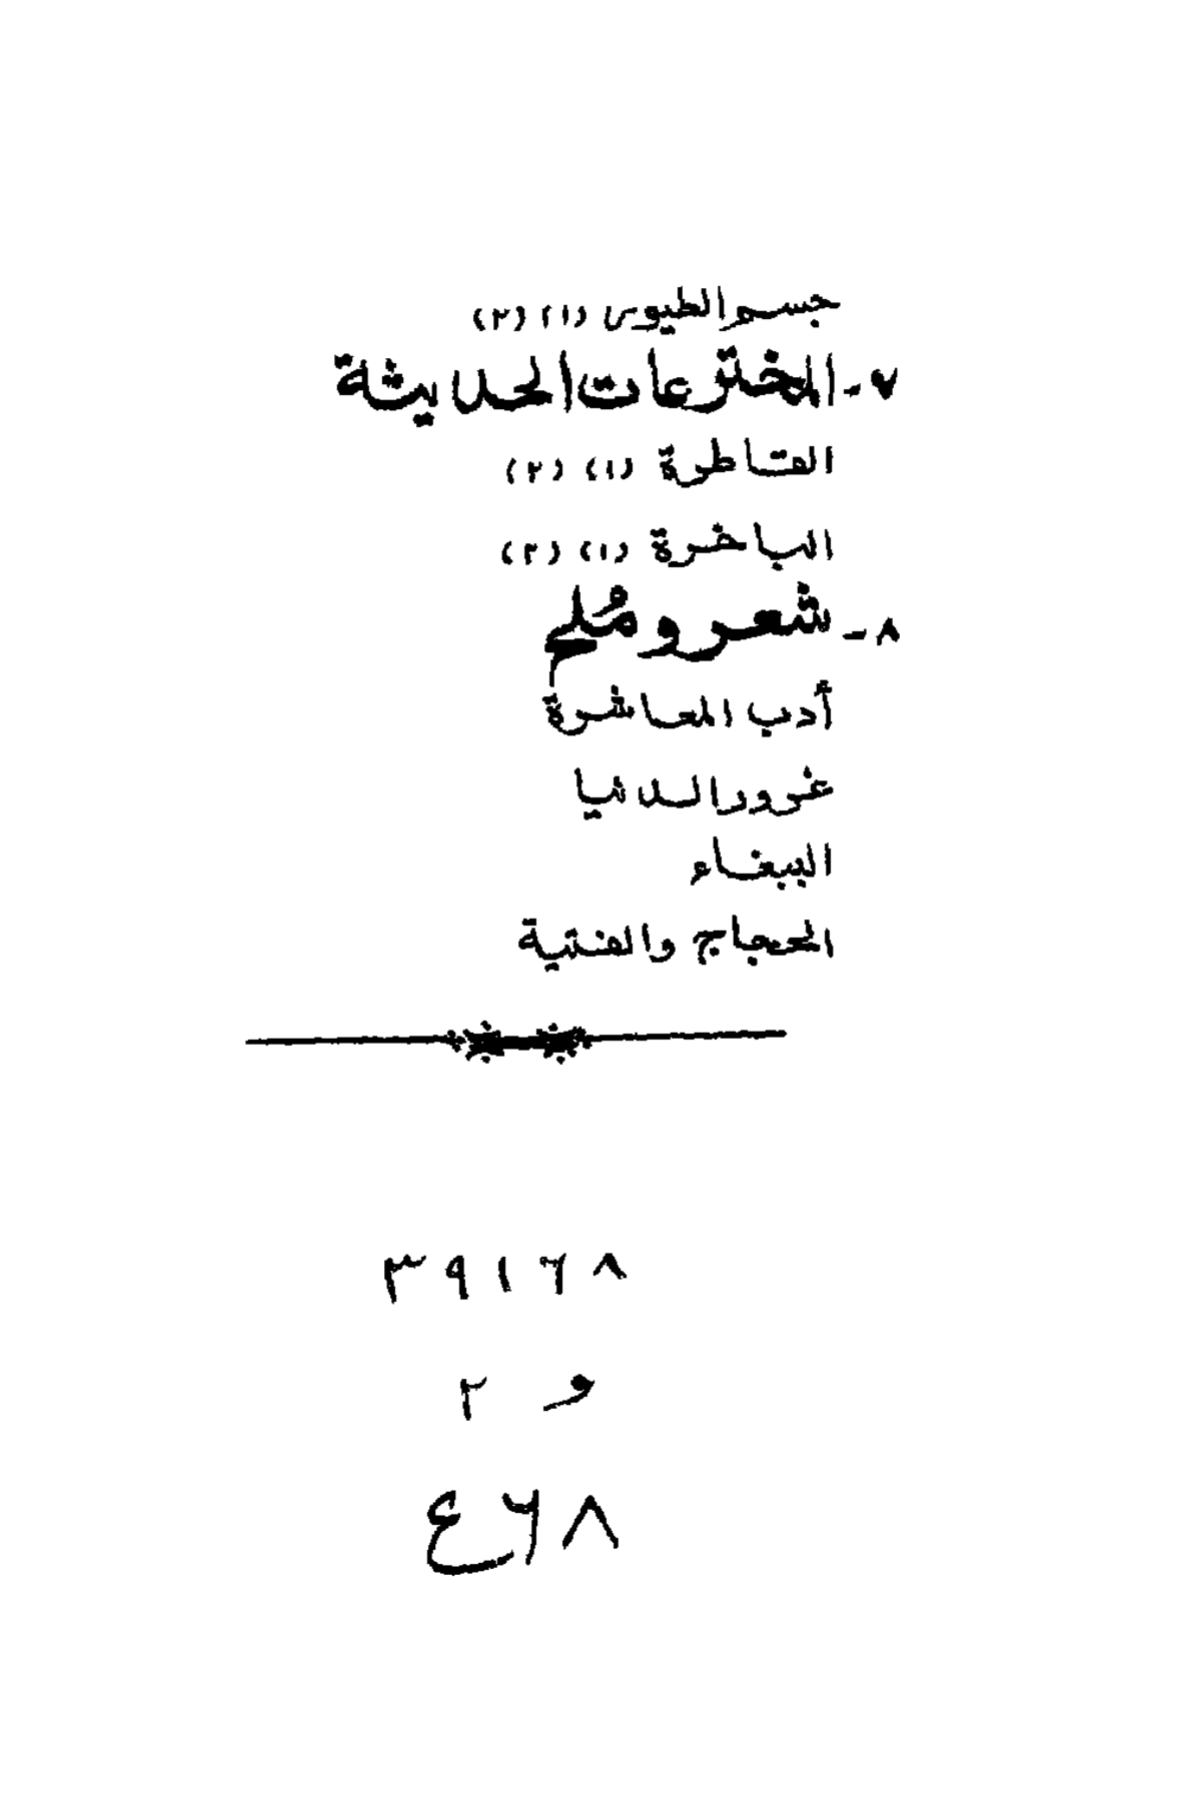 جسم الطيور (١) (٢)
٧- المخترعات الحديثة
القاطرة (١) (٢)
الباخرة (١) (٢)
٨- شعر ومُلح
أدب المعاشرة
غرور الدنيا
الببغاء
الحجاج والفتية
٣٩١٦٨
و ٢
٨٦ع